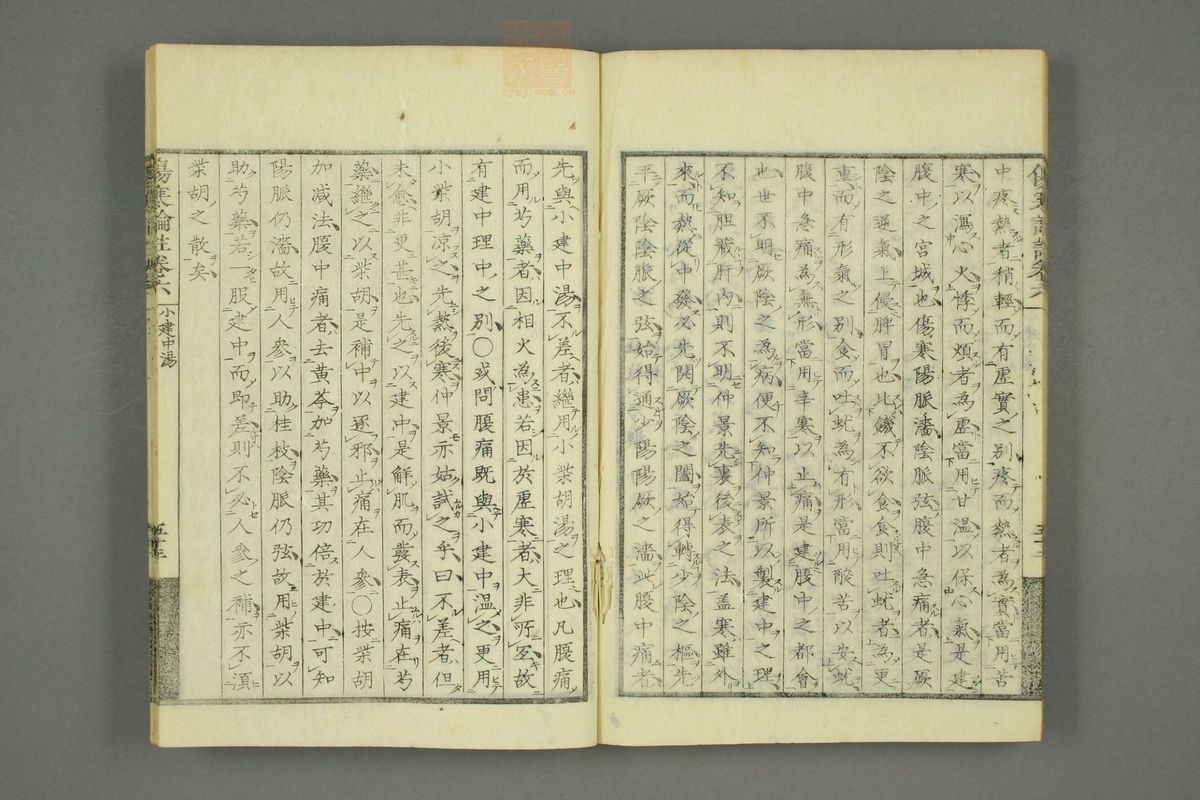 中疼熱者稍輕而有虛實之別疼而熱者為實當用苦
寒以瀉心火悸而煩者為虛當用甘溫以保心氣是建
腹中之宮城也傷寒陽脈濇陰脈弦腹中急痛者是厥
陰之逆氣上侵脾胃也比饑不欲食食則吐蚘者為更
重而有形氣之別食而吐蚘為有形當用酸苦以安蚘
腹中急痛為無形當用辛寒以止痛是建腹中之都會
也世不明厥陰之為病便不知仲景所以製建中之理
不知胆藏肝内則不明仲景先裏後表之法盖寒雖外
來而熱從中發必先開厥陰之闔始得轉少陰之樞先
平厥陰陰脈之弦始得通少陽陽脈之濇此腹中痛者
先與小建中湯不差者繼用小柴胡湯之理也凡腹痛
而用芍藥者因相火為患若因於虛寒者大非所宜故
有建中理中之別○或問腹痛既與小建中溫之更用
小柴胡凉之先熱後寒仲景亦姑試之乎曰不差者但
未愈非更甚也先之以建中是解肌而發表止痛在芍
藥繼之以柴胡是補中以逐邪止痛在人參○按柴胡
加减法腹中痛者去黄芩加芍藥其功倍於建中可知
陽脈仍濇故用人參以助桂枝陰脈仍弦故用柴胡以
助芍藥若一服建中而即差則不必人參之補亦不須
柴胡之散矣
傷寒論註卷六
小建中湯
zysj.com.cn